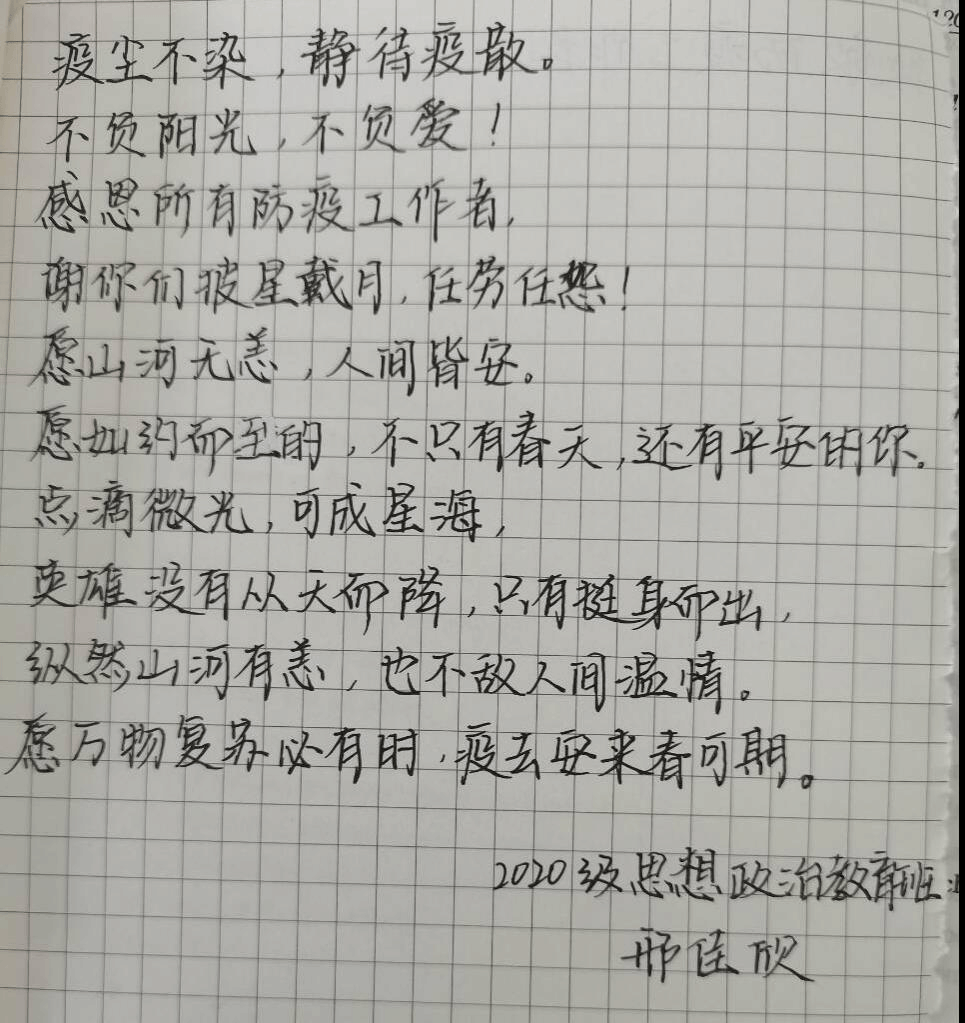 疫尘不染，静待疫散。
不负阳光，不负爱！
感恩所有防疫工作者，
谢你们披星戴月，任劳任怨！
愿山河无恙，人间皆安。
愿如约而至的，不只有春天，还有平安的你。
点滴微光，可成星海，
英雄没有从天而降，只有挺身而出，
纵然山河有恙，也不敌人间温情。
愿万物复苏必有时，疫去安来春可期。
2020级思想政治教育班
邢佳欣